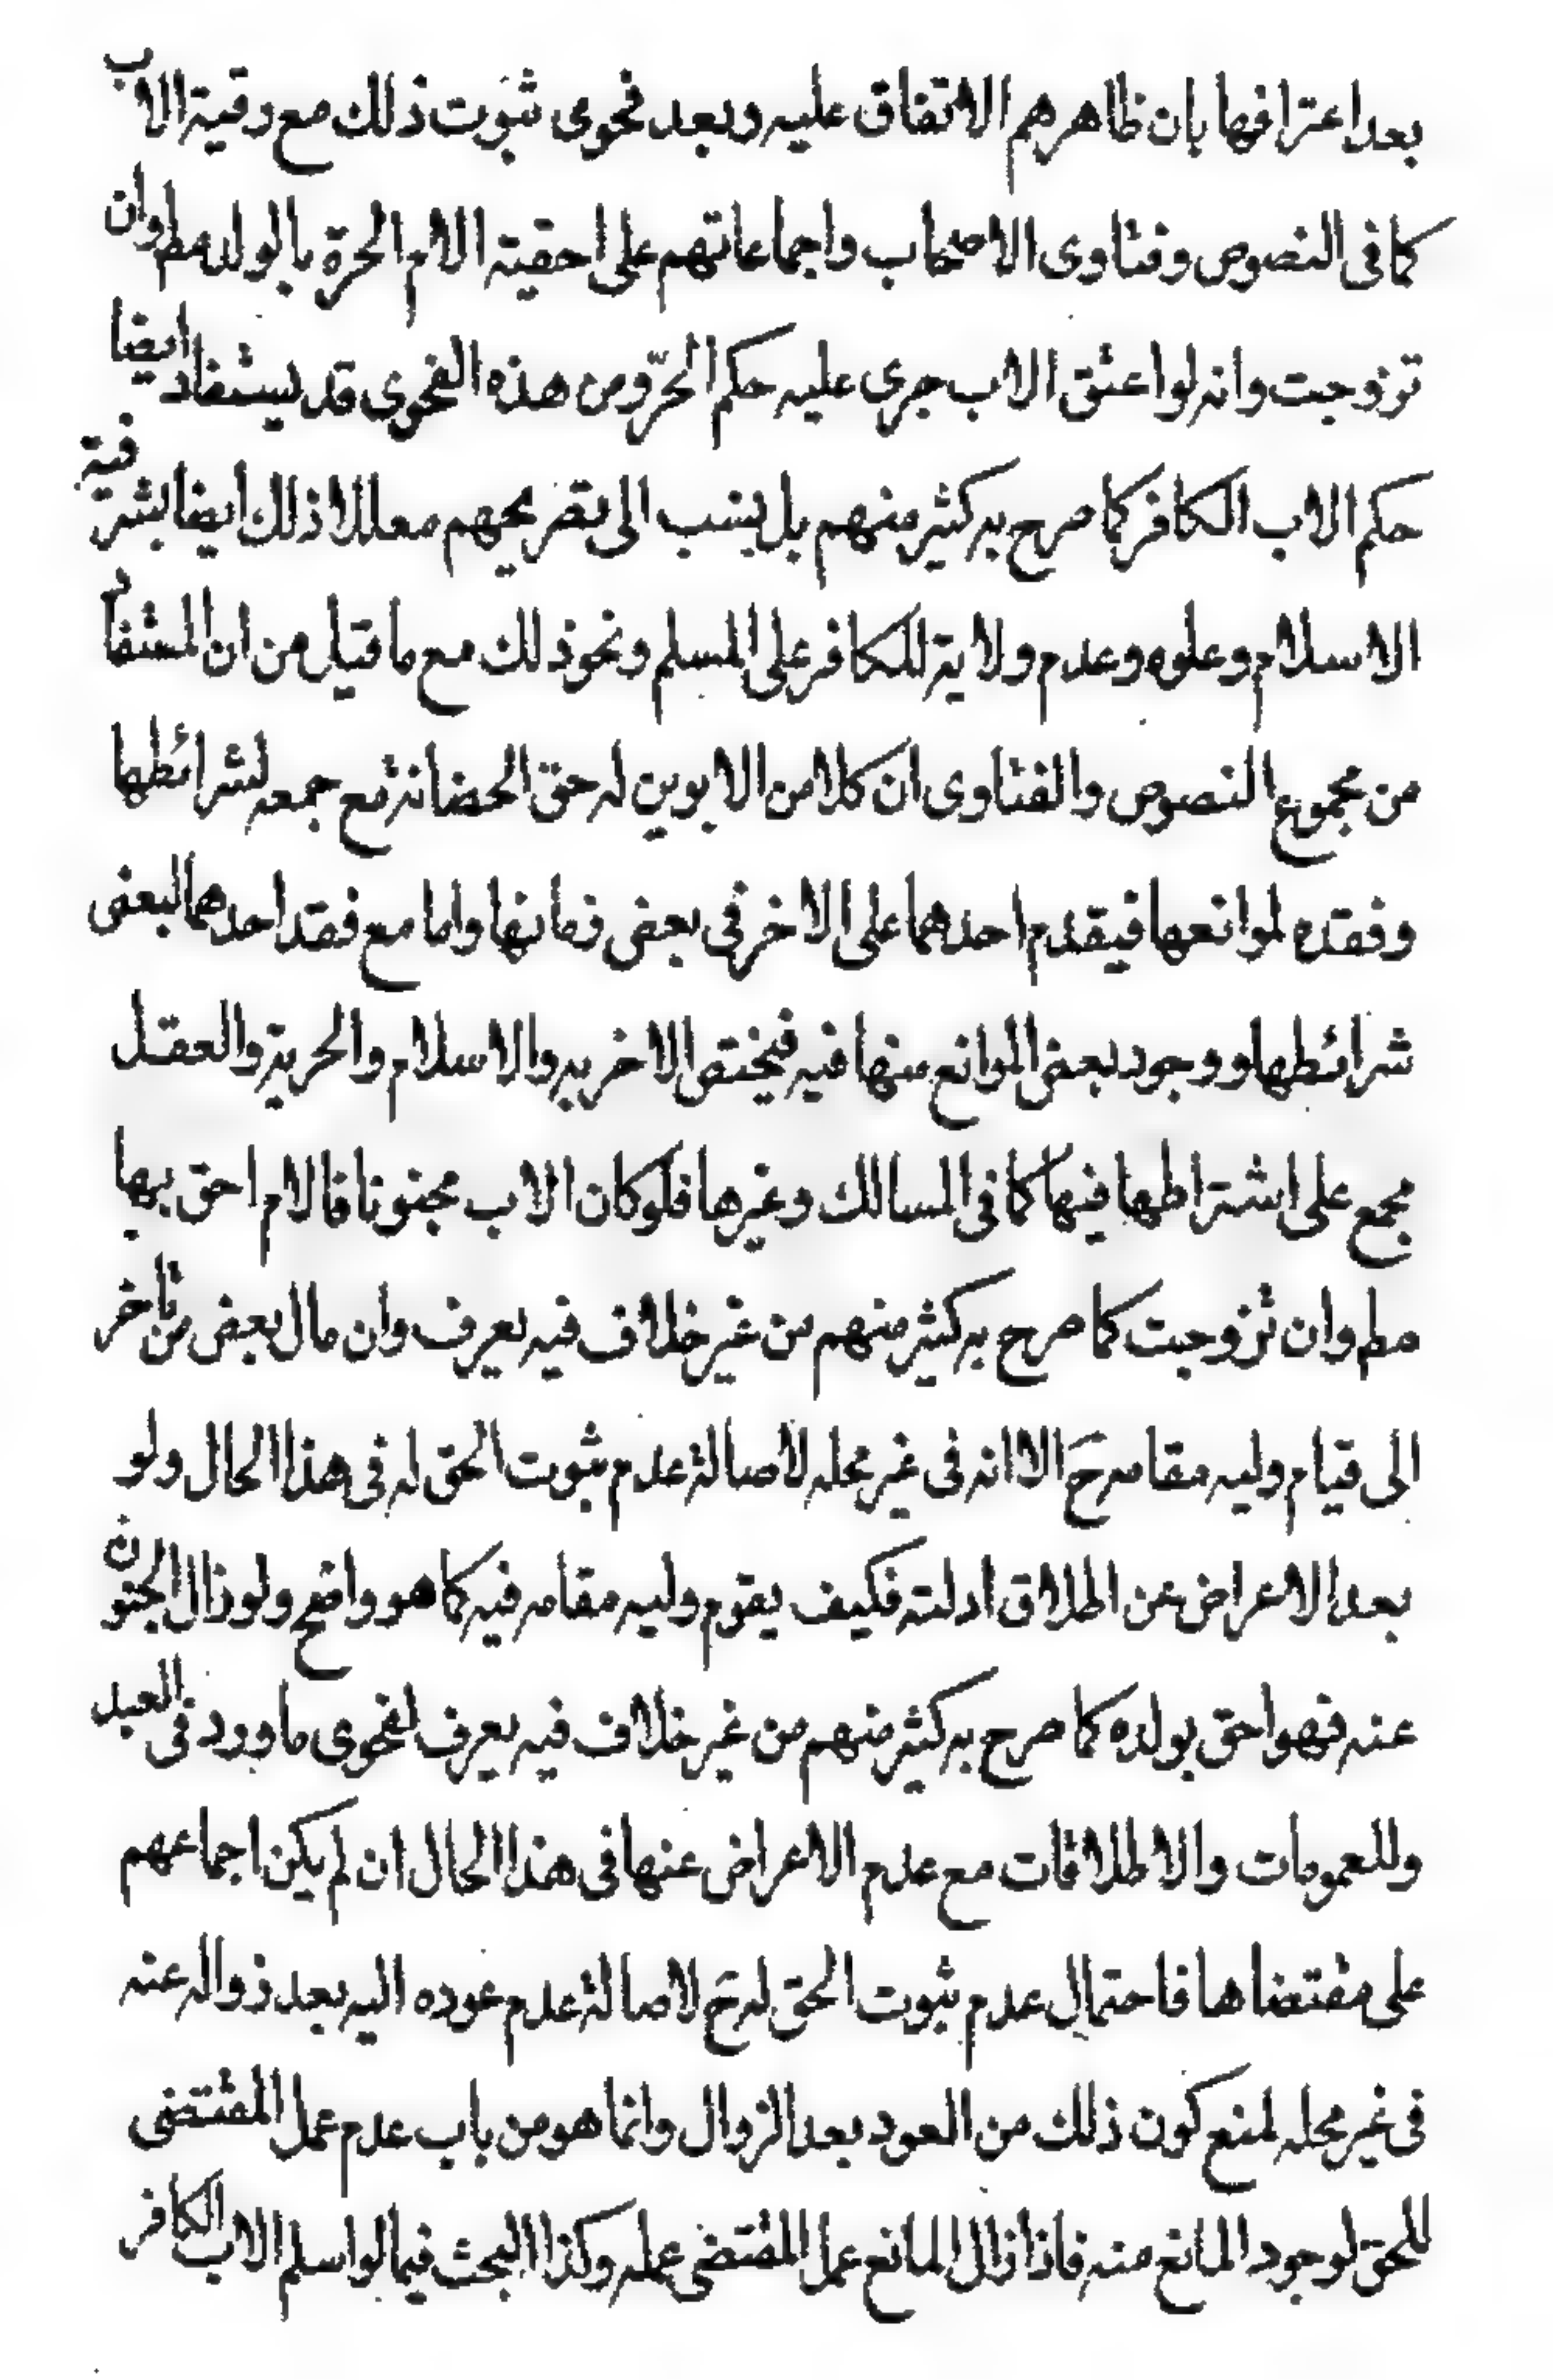 بعد اعترافها بان ظاهرهم الاتفاق عليه وبعد فحوى ثبوت ذلك مع رقية الاب
كما فى النصوص وفتاوى الاصحاب واجماعاتهم على احقية الام الحرة بالولد مط وان
تزوجت وانه لو اعتق الاب جرى عليه حكم الحرّ ومن هذه الفحوى قد يستفاد ايضا
حكم الاب الكافر كما صرح به كثير منهم بل ينسب الى تصريحهم معللا ذلك ايضا بشرفية
الاسلام وعلوه وعدم ولاية للكافر على المسلم ونحو ذلك مع ما قيل من ان المستفاد
من مجموع النصوص والفتاوى ان كلا من الابوين له حق الحضانة مع جمعه لشرائطها
وفقده لموانعها فيقدم احدهما على الاخر فى بعض زمانها واما مع فقد احدهما لبعض
شرائطها ووجود بعض الموانع منها فيه فيختص الاخر به والاسلام والحرية والعقل
مجمع على اشتراطها فيها كما فى المسالك وغيرها فلو كان الاب مجنونا فالام احق بها
مط وان تزوجت كما صرح به كثير منهم من غير خلاف فيه يعرف وان مال بعض من تاخر
الى قيام وليه مقامه ح الا انه فى غير محله لاصالة عدم ثبوت الحق له فى هذا الحال ولو
بعد الاعراض عن اطلاق ادلته فكيف يقوم وليه مقامه فيه كما هو واضح ولو زال الجنون
عنه فهو احق بولده كما صرح به كثير منهم من غير خلاف فيه يعرف لفحوى ما ورد فى العبد
وللعمومات والاطلاقات مع عدم الاعراض عنها فى هذا الحال ان لم يكن اجماعهم
على مقتضاها فاحتمال عدم ثبوت الحق له ح لاصالة عدم عوده اليه بعد زواله عنه
فى غير محله لمنع كون ذلك من العود بعد الزوال وانما هو من باب عدم عمل المقتضى
للحق لوجود المانع منه فاذا زال المانع عمل المقتضى عمله وكذا البحث فيما لو اسلم الاب الكافر